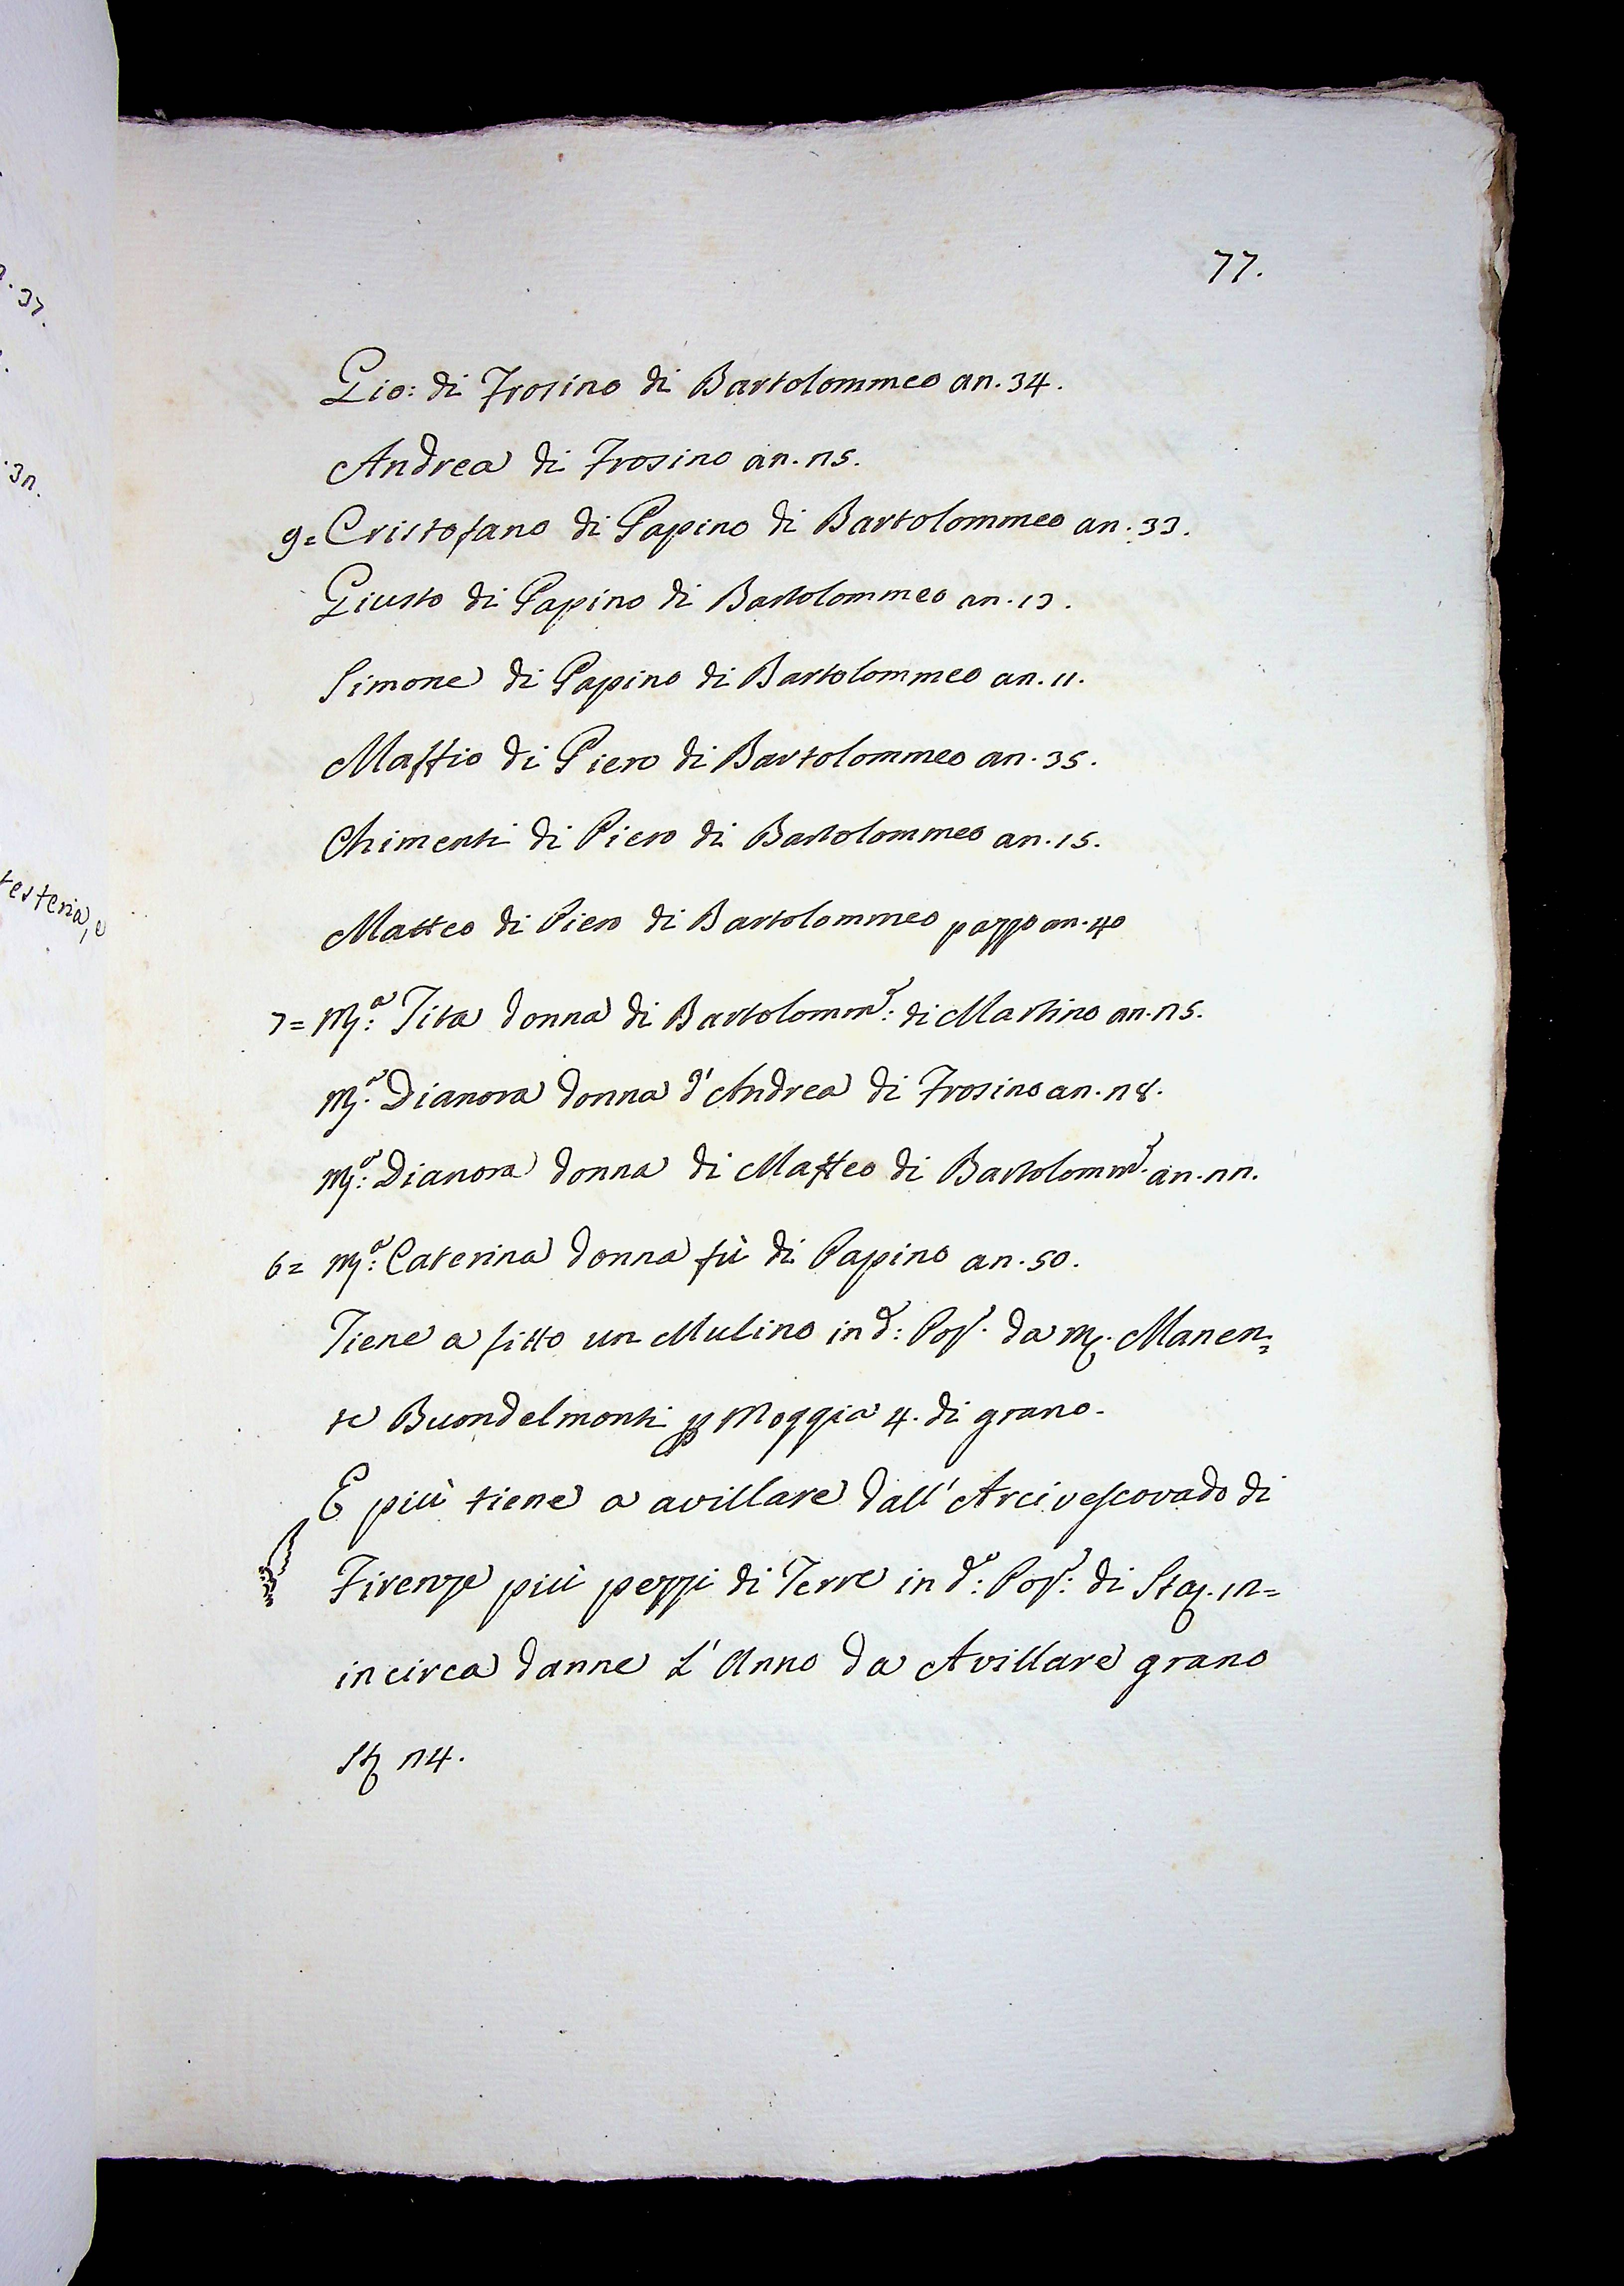 77.
Gio: di Frosino di Bartolommeo an. 34.
Andrea di Frosino an. 25.
9= Cristofano di Papino di Bartolommeo an. 33.
Giusto di Papino di Bartolommeo an. 13.
Simone di Papino di Bartolommeo an. 11.
Maffio di Piero di Bartolommeo an. 35.
Chimenti di Piero di Bartolommeo an. 15.
Matteo di Piero di Bartolommeo pazzo an. 40
7= M.ª Tita donna di Bartolomm.º: di Martino an. 25.
M.ª Dianora donna d'Andrea di Frosino an. 28.
M.ª: Dianora donna di Maffeo di Bartolomm.º an. 22.
6= M.ª: Caterina donna fù di Papino an. 50.
Tiene a fitto un Mulino in d.º: Pop.º da M. Manen=
te Buondelmonti p Moggia 4. di grano.
E più tiene a avillare dall'Arcivescovado di
Firenze più pezzi di Terre in d.º: Pop.º: di Staj. 12=
incirca danne L'Anno da Avillare grano
St 24.
37.
32.
testeria, e